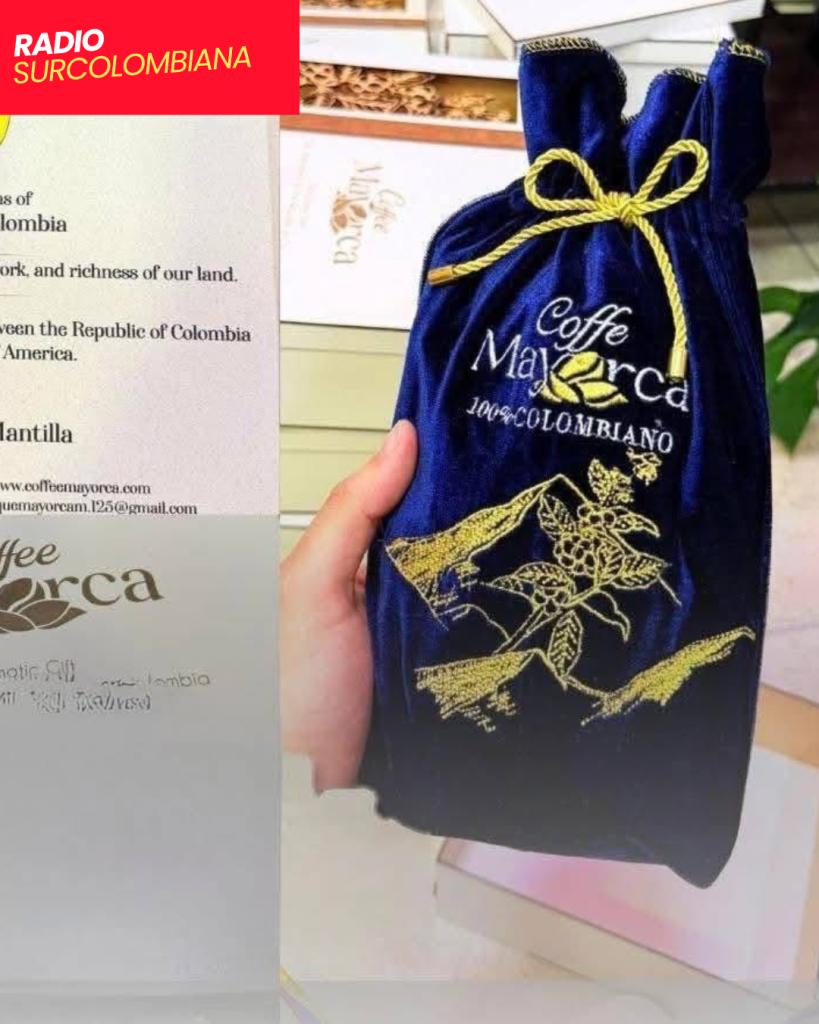 RADIO
SURCOLOMBIANA
as of
lombia
ork, and richness of our land.
ween the Republic of Colombia
America.
lantilla
ww.coffeemayorca.com
quemayorcam.125@gmail.com
ffee
orca
lombia
Coffee
Mayorca
Coffe
Mayorca
100%COLOMBIANO